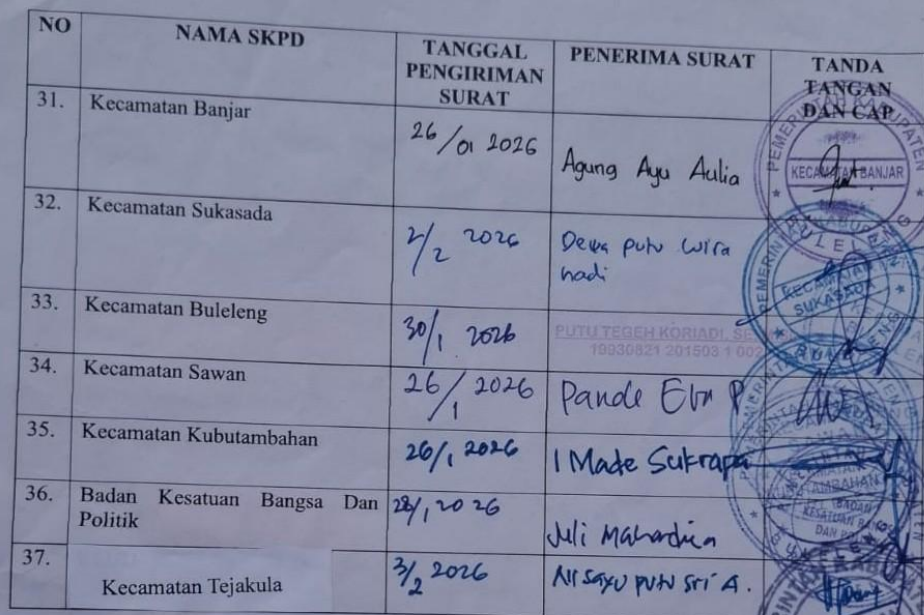 NO NAMA SKPD TANGGAL PENGIRIMAN SURAT PENERIMA SURAT TANDA TANGAN DAN CAP
31. Kecamatan Banjar 26/01 2026 Agung Ayu Aulia
PEMERINTAH KABUPATEN
KECAMATAN BANJAR
BULELENG
32. Kecamatan Sukasada 2/2 2026 Dewa putu wira
nadi
KECAMATAN
SUKASADA
BULELENG
33. Kecamatan Buleleng 30/1 2026 PUTU TEGEH KORIADI,
19930821 201503 1 002
34. Kecamatan Sawan 26/1 2026 Pande
35. Kecamatan Kubutambahan 26/1 2026 I Made Sukrapa
36. Badan Kesatuan Bangsa Dan
Politik 28/1 2026 Juli Mahardica
BADAN
KESATUAN BANGSA
37. Kecamatan Tejakula 3/2 2026 putu Sri A.